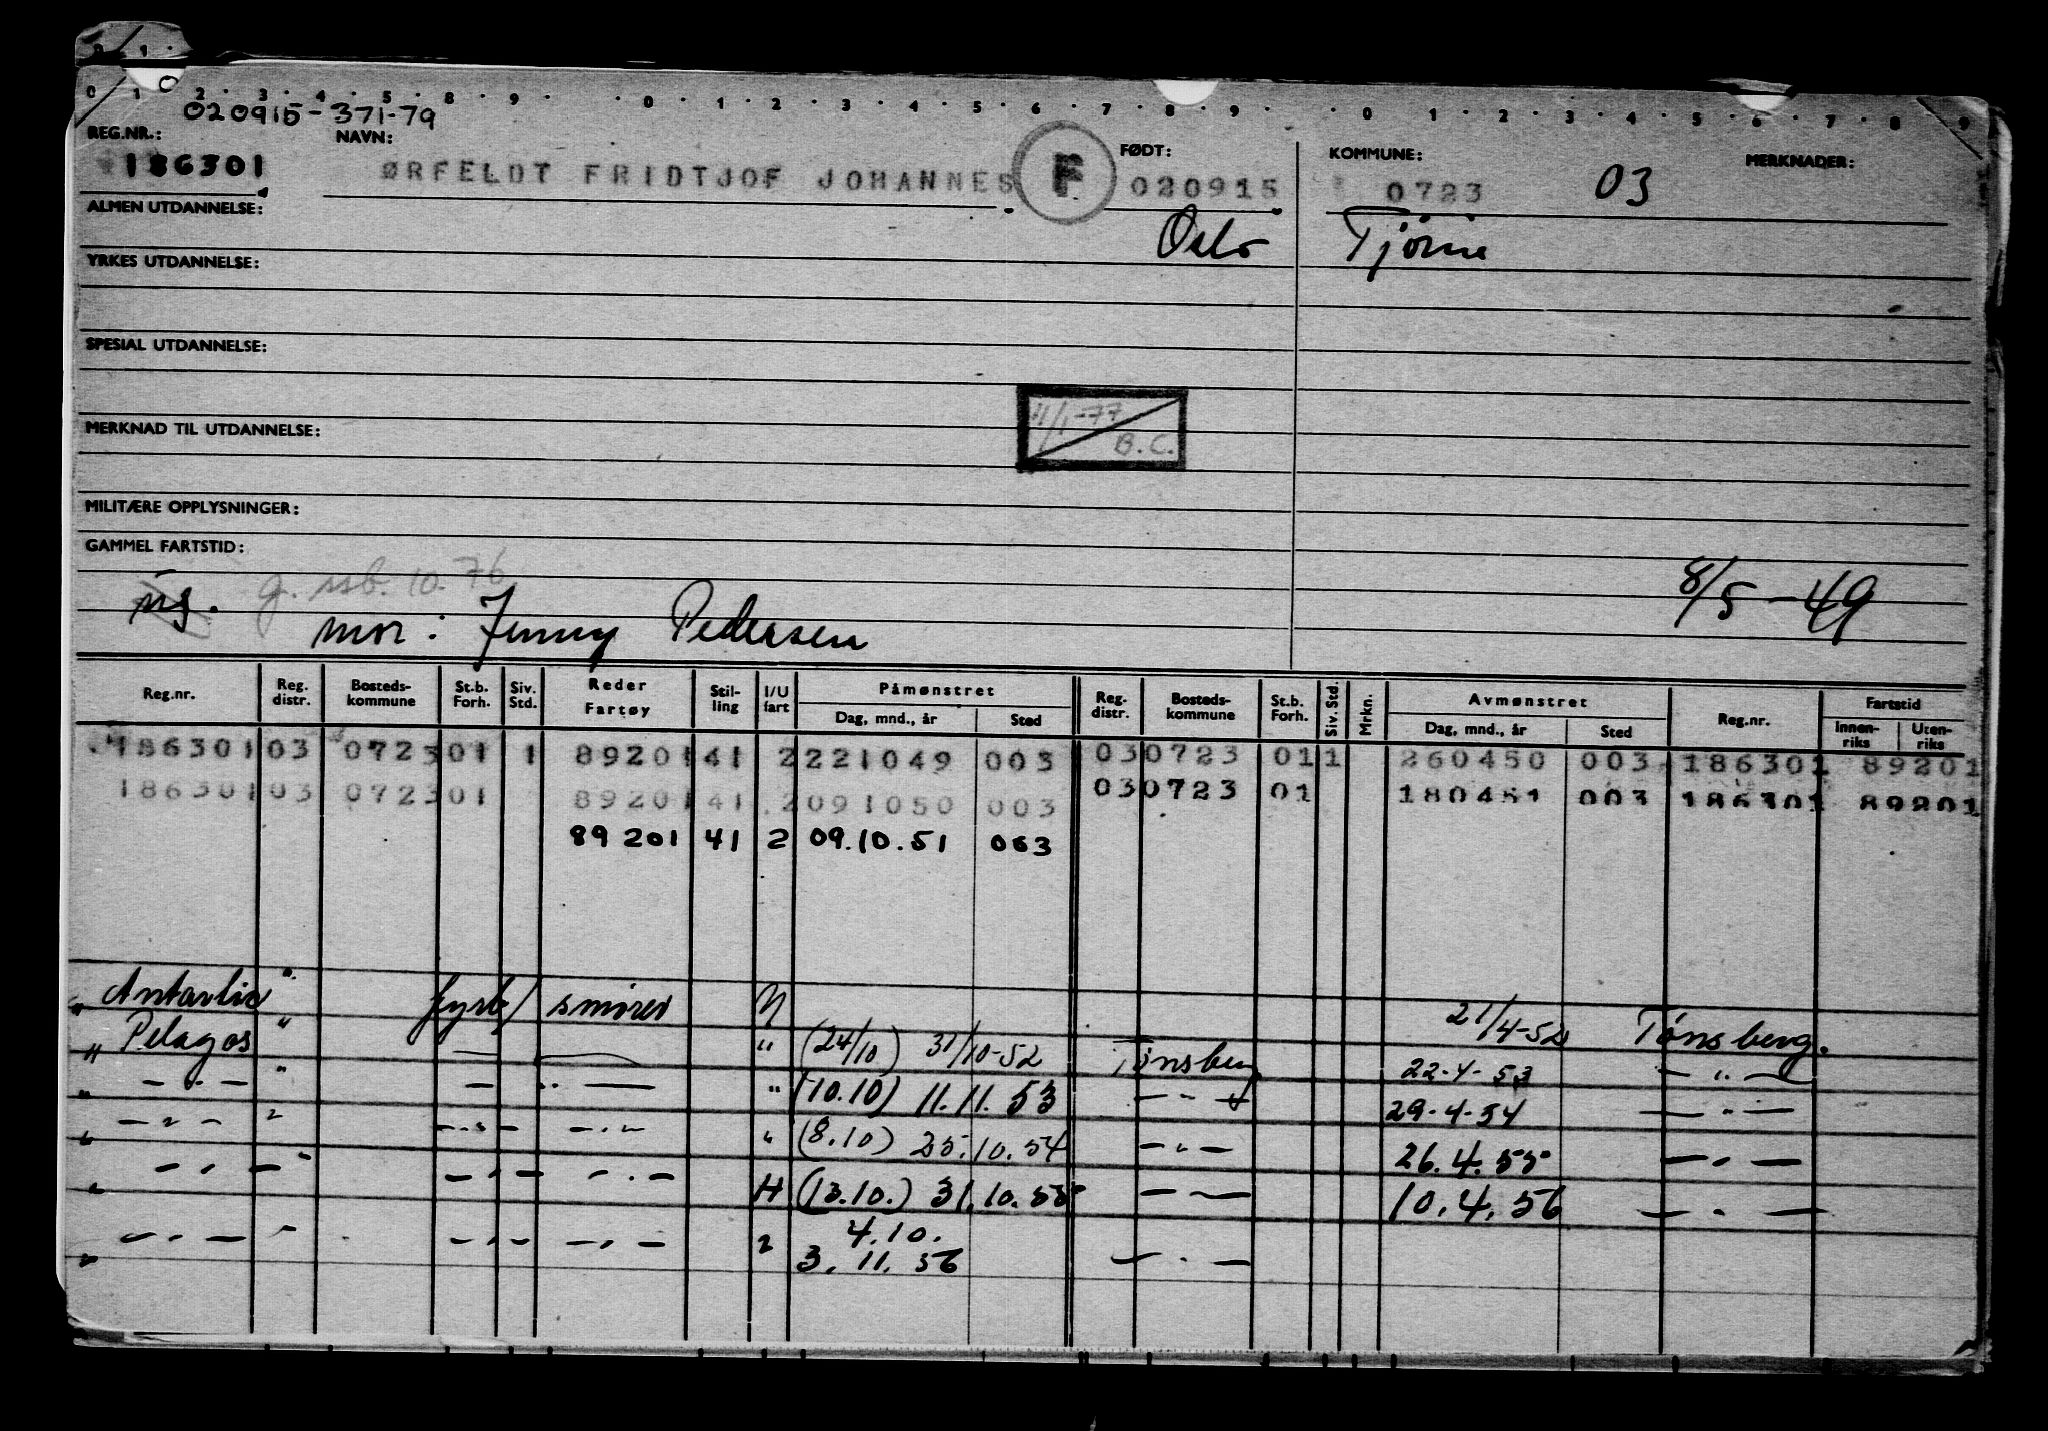 020915-371-79
REG.NR.: NAVN: FØDT: KOMMUNE: MERKNADER:
186301 ØRFELDT FRIDTJOF JOHANNES F 020915 0723 03
ALMEN UTDANNELSE: Oslo Tjøme
YRKES UTDANNELSE:
SPESIAL UTDANNELSE:
4/1-77 B.C.
MERKNAD TIL UTDANNELSE:
MILITÆRE OPPLYSNINGER:
GAMMEL FARTSTID:
g. ssb. 10.76 8/5-49
mor: Jenny Pedersen
Reg.nr. Reg. distr. Bosteds-kommune St.b. Forh. Siv. Std. Reder Fartøy Stil-ling I/U fart Påmønstret Dag, mnd., år Sted Reg. distr. Bosteds-kommune St.b. Forh. Siv. Std. Mrkn. Avmønstret Dag, mnd., år Sted Reg.nr. Fartstid Innen-riks Uten-riks
186301 03 0723 01 1 89201 41 2 221049 003 03 0723 01 1 260450 003 186301 89201
186301 03 0723 01 89201 41 2 091050 003 03 0723 01 180451 003 186301 89201
89201 41 2 09.10.51 003
" Antarctic " fyrb/ smører 21/4-52 Tønsberg.
" Pelagos " — " (24/10) 31/10-52 Tønsberg 22-4-53 — " —
" — " — " — " — " (10.10) 11.11.53 — " — 29-4-54 — " —
" — " — " — " — — " — " (8.10) 25.10.54 — " — 26.4.55 — " —
" — " — " — " — — " — " (13.10.) 31.10.55 — " — 10.4.56 — " —
" — " — " — " — — " — " 4.10.
3.11.56 — " —